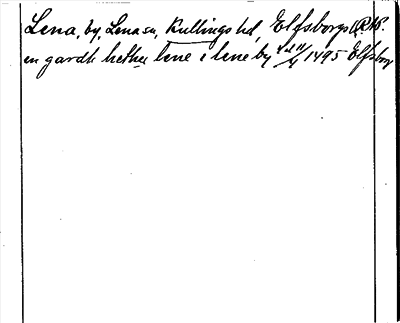 Lena, by, Lena sn, Kullings hd, Elfsborgs l.
en gardh hether lene i lene by 11/4 1495 Elfsborg